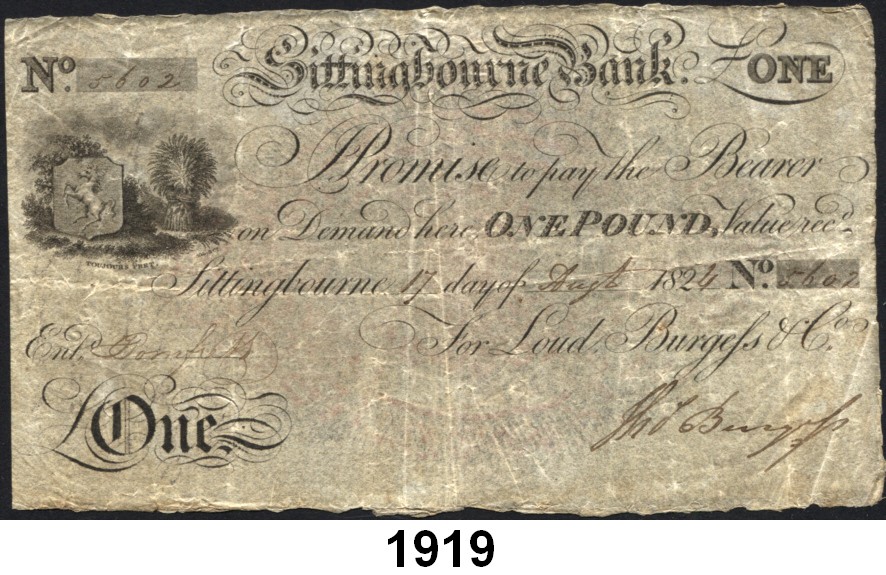 No. 5602 Sittingbourne Bank. £ONE
I Promise to pay the Bearer
on Demand here, ONE POUND, Value recd.
TOUJOURS PRET
Sittingbourne 17 day of Augt 1824 No. 5602
Entd. For Loud, Burgess & Co.
£One
Jno Burgess
1919